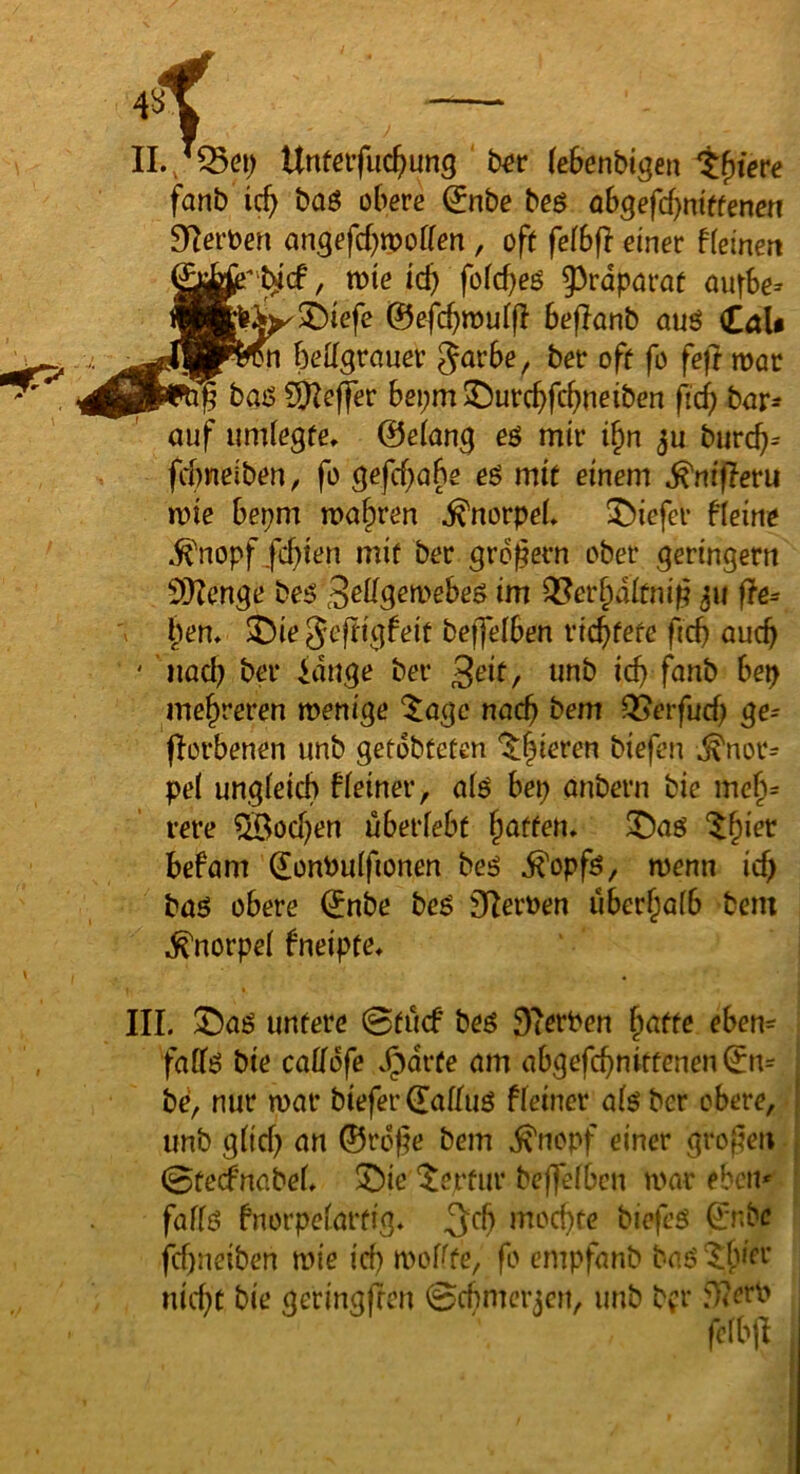 48
II. Bey Unterſuchung der lebendigen Thiere
fand ich das obere Ende des abgeſchnittenen
Nerven angeſchwollen, oft ſelbſt einer kleinen
dick, wie ich ſolches Präparat aufbe-
Dieſe Geſchwulſt beſtand aus Cal-
hellgrauer Farbe, der oft ſo feſt war
das Meſſer beym Durchſchneiden ſich dar-
auf umlegte. Gelang es mir ihn zu durch-
ſchneiden, ſo geſchahe es mit einem Kniſtern
wie beym wahren Knorpel. Dieſer kleine
Knopf ſchien mit der größern oder geringern
Menge des Zellgewebes im Verhältniß zu ſte-
hen. Die Feſtigkeit deſſelben richtete ſich auch
nach der Länge der Zeit, und ich fand bey
mehreren wenige Tage nach dem Verſuch ge-
ſtorbenen und getödteten Thieren dieſen Knor-
pel ungleich kleiner, als bey andern die meh-
rere Wochen überlebt hatten. Das Thier
bekam Convulſionen des Kopfs, wenn ich
das obere Ende des Nerven überhalb dem
Knorpel kneipte.
III. Das untere Stück des Nerven hatte eben-
falls die callöſe Härte am abgeſchnittenen En-
de, nur war dieſer Callus kleiner als der obere,
und glich an Größe dem Knopf einer großen
Stecknadel. Die Textur deſſelben war eben-
falls knorpelartig. Ich mochte dieſes Ende
ſchneiden wie ich wollte, ſo empfand das Thier
nicht die geringſten Schmerzen, und der Nerv
ſelbſt